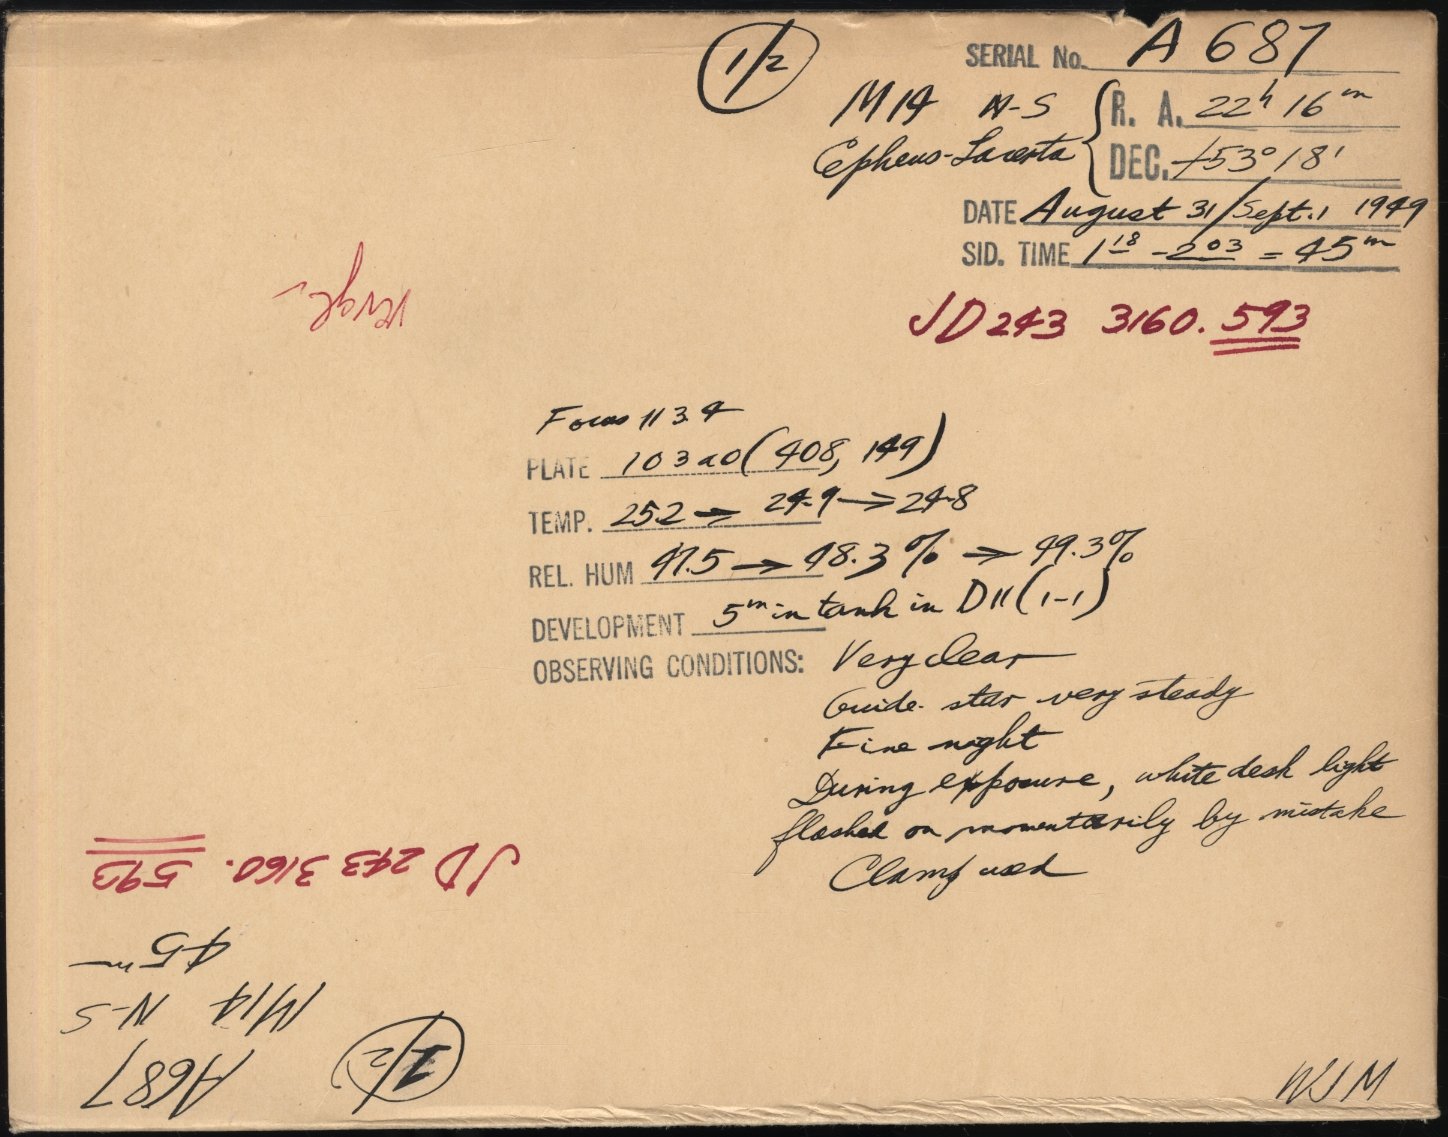 1/2
SERIAL No. A 687
M14 N-S R. A. 22h 16m
Cepheus-Lacerta DEC. +53° 18'
DATE August 31/Sept. 1 1949
SID. TIME 1 18 - 2 03 = 45m
JD 243 3160.593
Focus 113.4
PLATE 103aO (408, 149)
TEMP. 25.2 → 24.9 → 24.8
REL. HUM 47.5 → 48.3% → 49.3%
DEVELOPMENT 5m in tank in D11 (1-1)
OBSERVING CONDITIONS: Very clear
Guide star very steady
Fine night
During exposure, white desk light
flashed on momentarily by mistake
Clamp used
WJM
A687 1/2
M14 N-S
45m
JD 243 3160.593